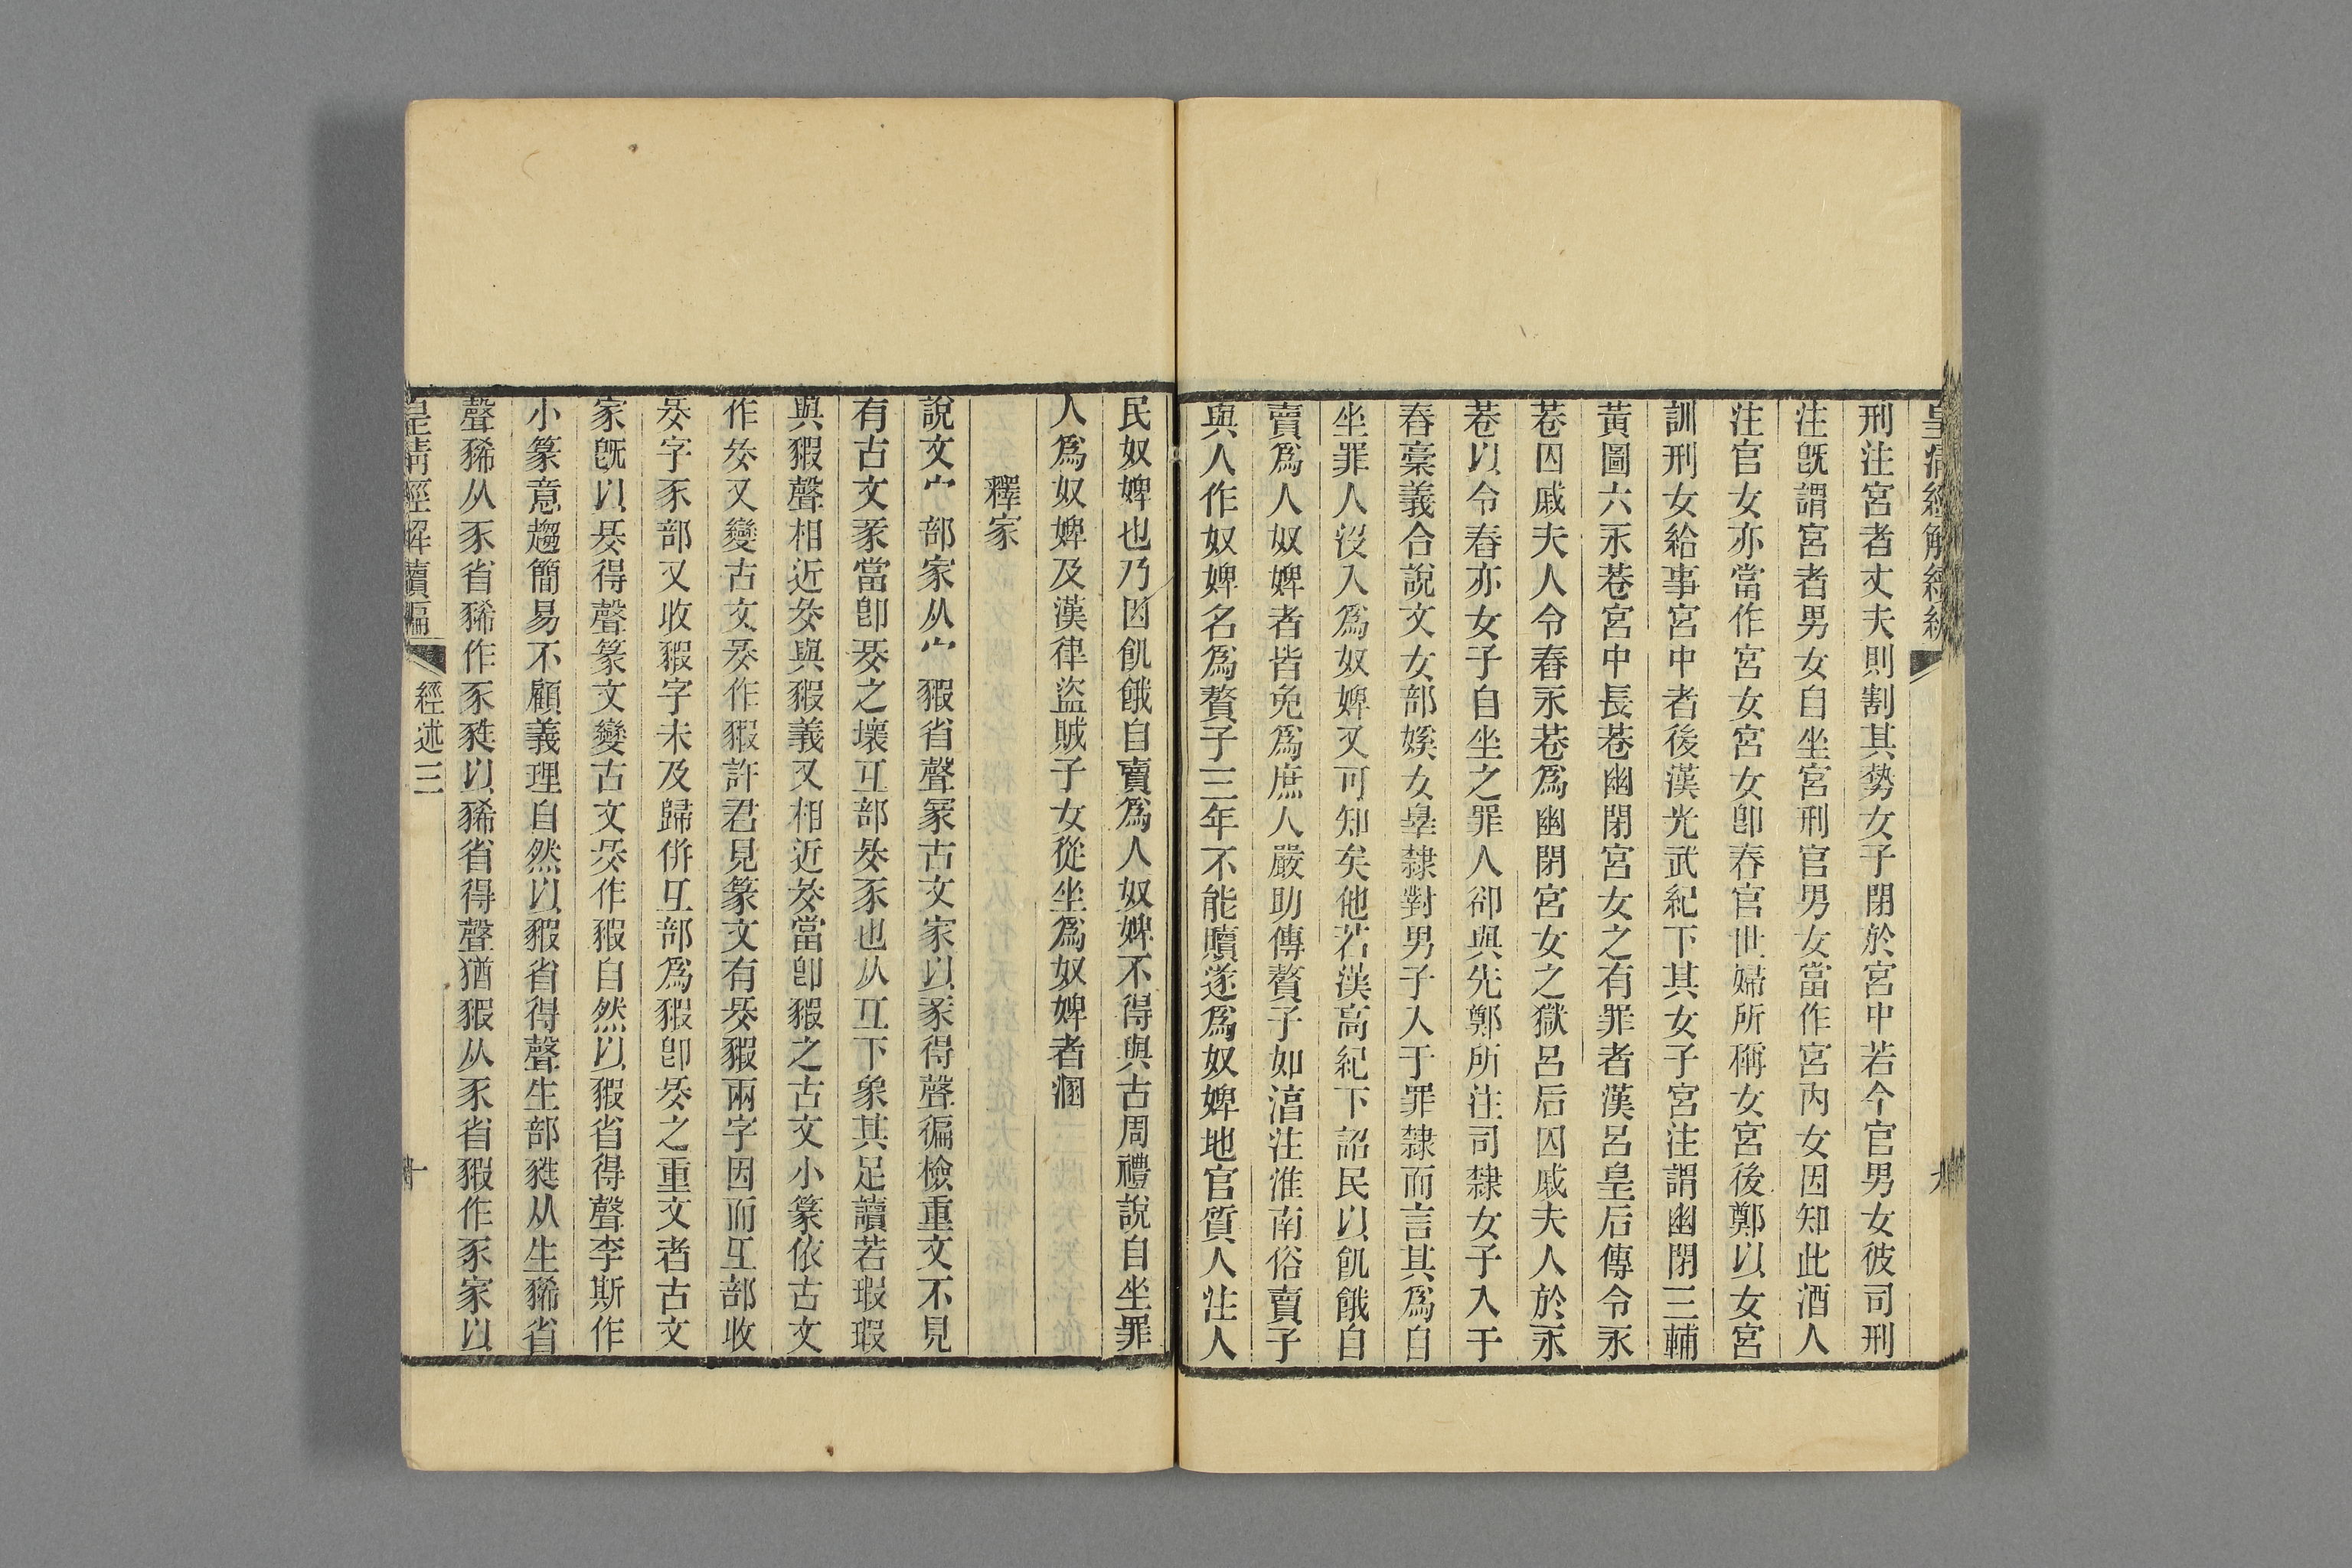 刑注宮者丈夫則割其勢女子閉於宮中若今官男女彼司刑
注既謂宮者男女自坐宮刑官男女當作宮內女因知此酒人
注官女亦當作宮女宮女卽春官世婦所稱女宮後鄭以女宮
訓刑女給事宮中者後漢光武紀下其女子宮注謂幽閉三輔
黃圖六永巷宮中長巷幽閉宮女之有罪者漢呂皇后傳令永
巷囚戚夫人令舂永巷爲幽閉宮女之獄呂后囚戚夫人於永
巷以令舂亦女子自坐之罪人卻與先鄭所注司隸女子入于
舂稾義合說文女部媄女辠隸對男子入于罪隸而言其爲自
坐罪人沒入爲奴婢又可知矣他若漢高紀下詔民以飢餓自
賣爲人奴婢者皆免爲庶人嚴助傳贅子如湻注淮南俗賣子
與人作奴婢名爲贅子三年不能贖遂爲奴婢地官質人注人
民奴婢也乃因飢餓自賣爲人奴婢不得與古周禮說自坐罪
人爲奴婢及漢律盜賊子女從坐爲奴婢者溷
釋家
說文宀部家从宀豭省聲古文家以豕得聲徧檢重文不見
有古文豕當卽之壞彑部豕也从彑下象其足讀若瑕瑕
與豭聲相近與豭義又相近當卽豭之古文小篆依古文
作又變古文作豭許君見篆文有豭兩字因而彑部收
字豕部又收豭字未及歸併彑部爲豭卽之重文者古文
家旣以得聲篆文變古文作豭自然以豭省得聲李斯作
小篆意趨簡易不顧義理自然以豭省得聲生部㽔从生豨省
聲豨从豕省豨作豕㽔以豨省得聲猶豭从豕省豭作豕家以
皇淸經解續編
經述三
十